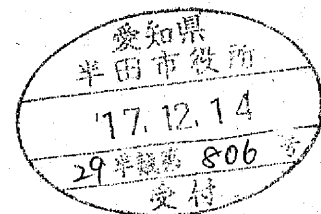 愛知県
半田市役所
'17.12.14
29半議第 806 号
受付